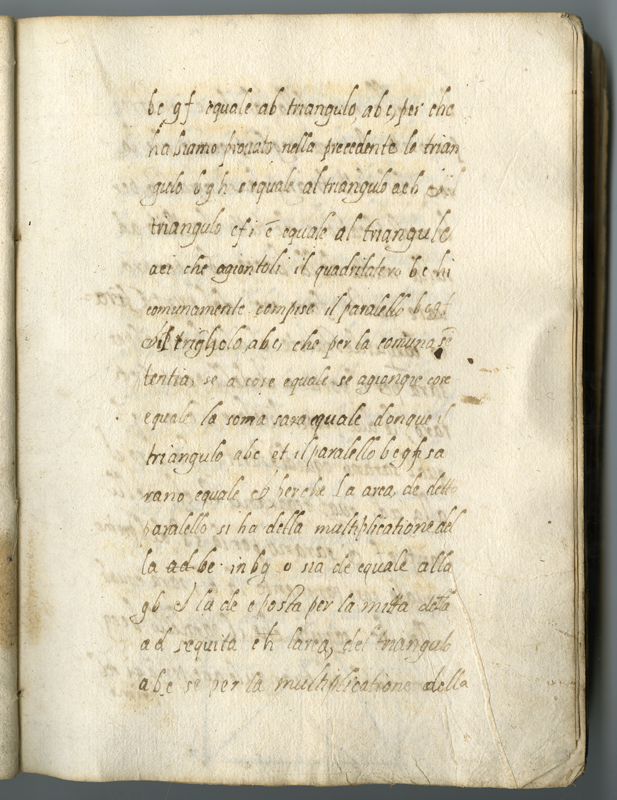 bc gf equale ab triangulo abc, per che
habiamo prouato nella precedente lo trian
gulo bgh è equale al triangulo aeh
triangulo cfi è equale al triangulo
aei che agiontoli il quadrilatero bc hi
comunamente compiso il paralello bcgf
trigholo abc, che per la comuna sē
tentia, se a cose equale se agionge cose
equale la soma sara equale donque il
triangulo abc et il paralello bcgf sa
rano equale et perche la area de detto
paralello si ha della multiplicatione del
la bc in bg o sia de equale alla
gb et la de e posta per la mitta della
ad sequita ch larea, del triangulo
abc si per la multiplicatione della